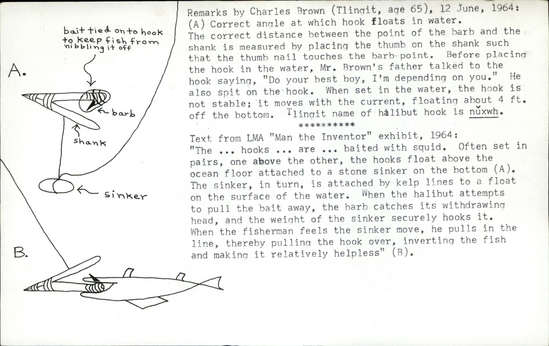 bait tied onto hook
to keep fish from
nibbling it off
A.
barb
shank
sinker
B.
Remarks by Charles Brown (Tlingit, age 65), 12 June, 1964:
(A) Correct angle at which hook floats in water.
The correct distance between the point of the barb and the
shank is measured by placing the thumb on the shank such
that the thumb nail touches the barb point. Before placing
the hook in the water, Mr. Brown's father talked to the
hook saying, "Do your best boy, I'm depending on you." He
also spit on the hook. When set in the water, the hook is
not stable; it moves with the current, floating about 4 ft.
off the bottom. Tlingit name of halibut hook is nŭxwh.
**********
Text from LMA "Man the Inventor" exhibit, 1964:
"The ... hooks ... are ... baited with squid. Often set in
pairs, one above the other, the hooks float above the
ocean floor attached to a stone sinker on the bottom (A).
The sinker, in turn, is attached by kelp lines to a float
on the surface of the water. When the halibut attempts
to pull the bait away, the barb catches its withdrawing
head, and the weight of the sinker securely hooks it.
When the fisherman feels the sinker move, he pulls in the
line, thereby pulling the hook over, inverting the fish
and making it relatively helpless" (B).